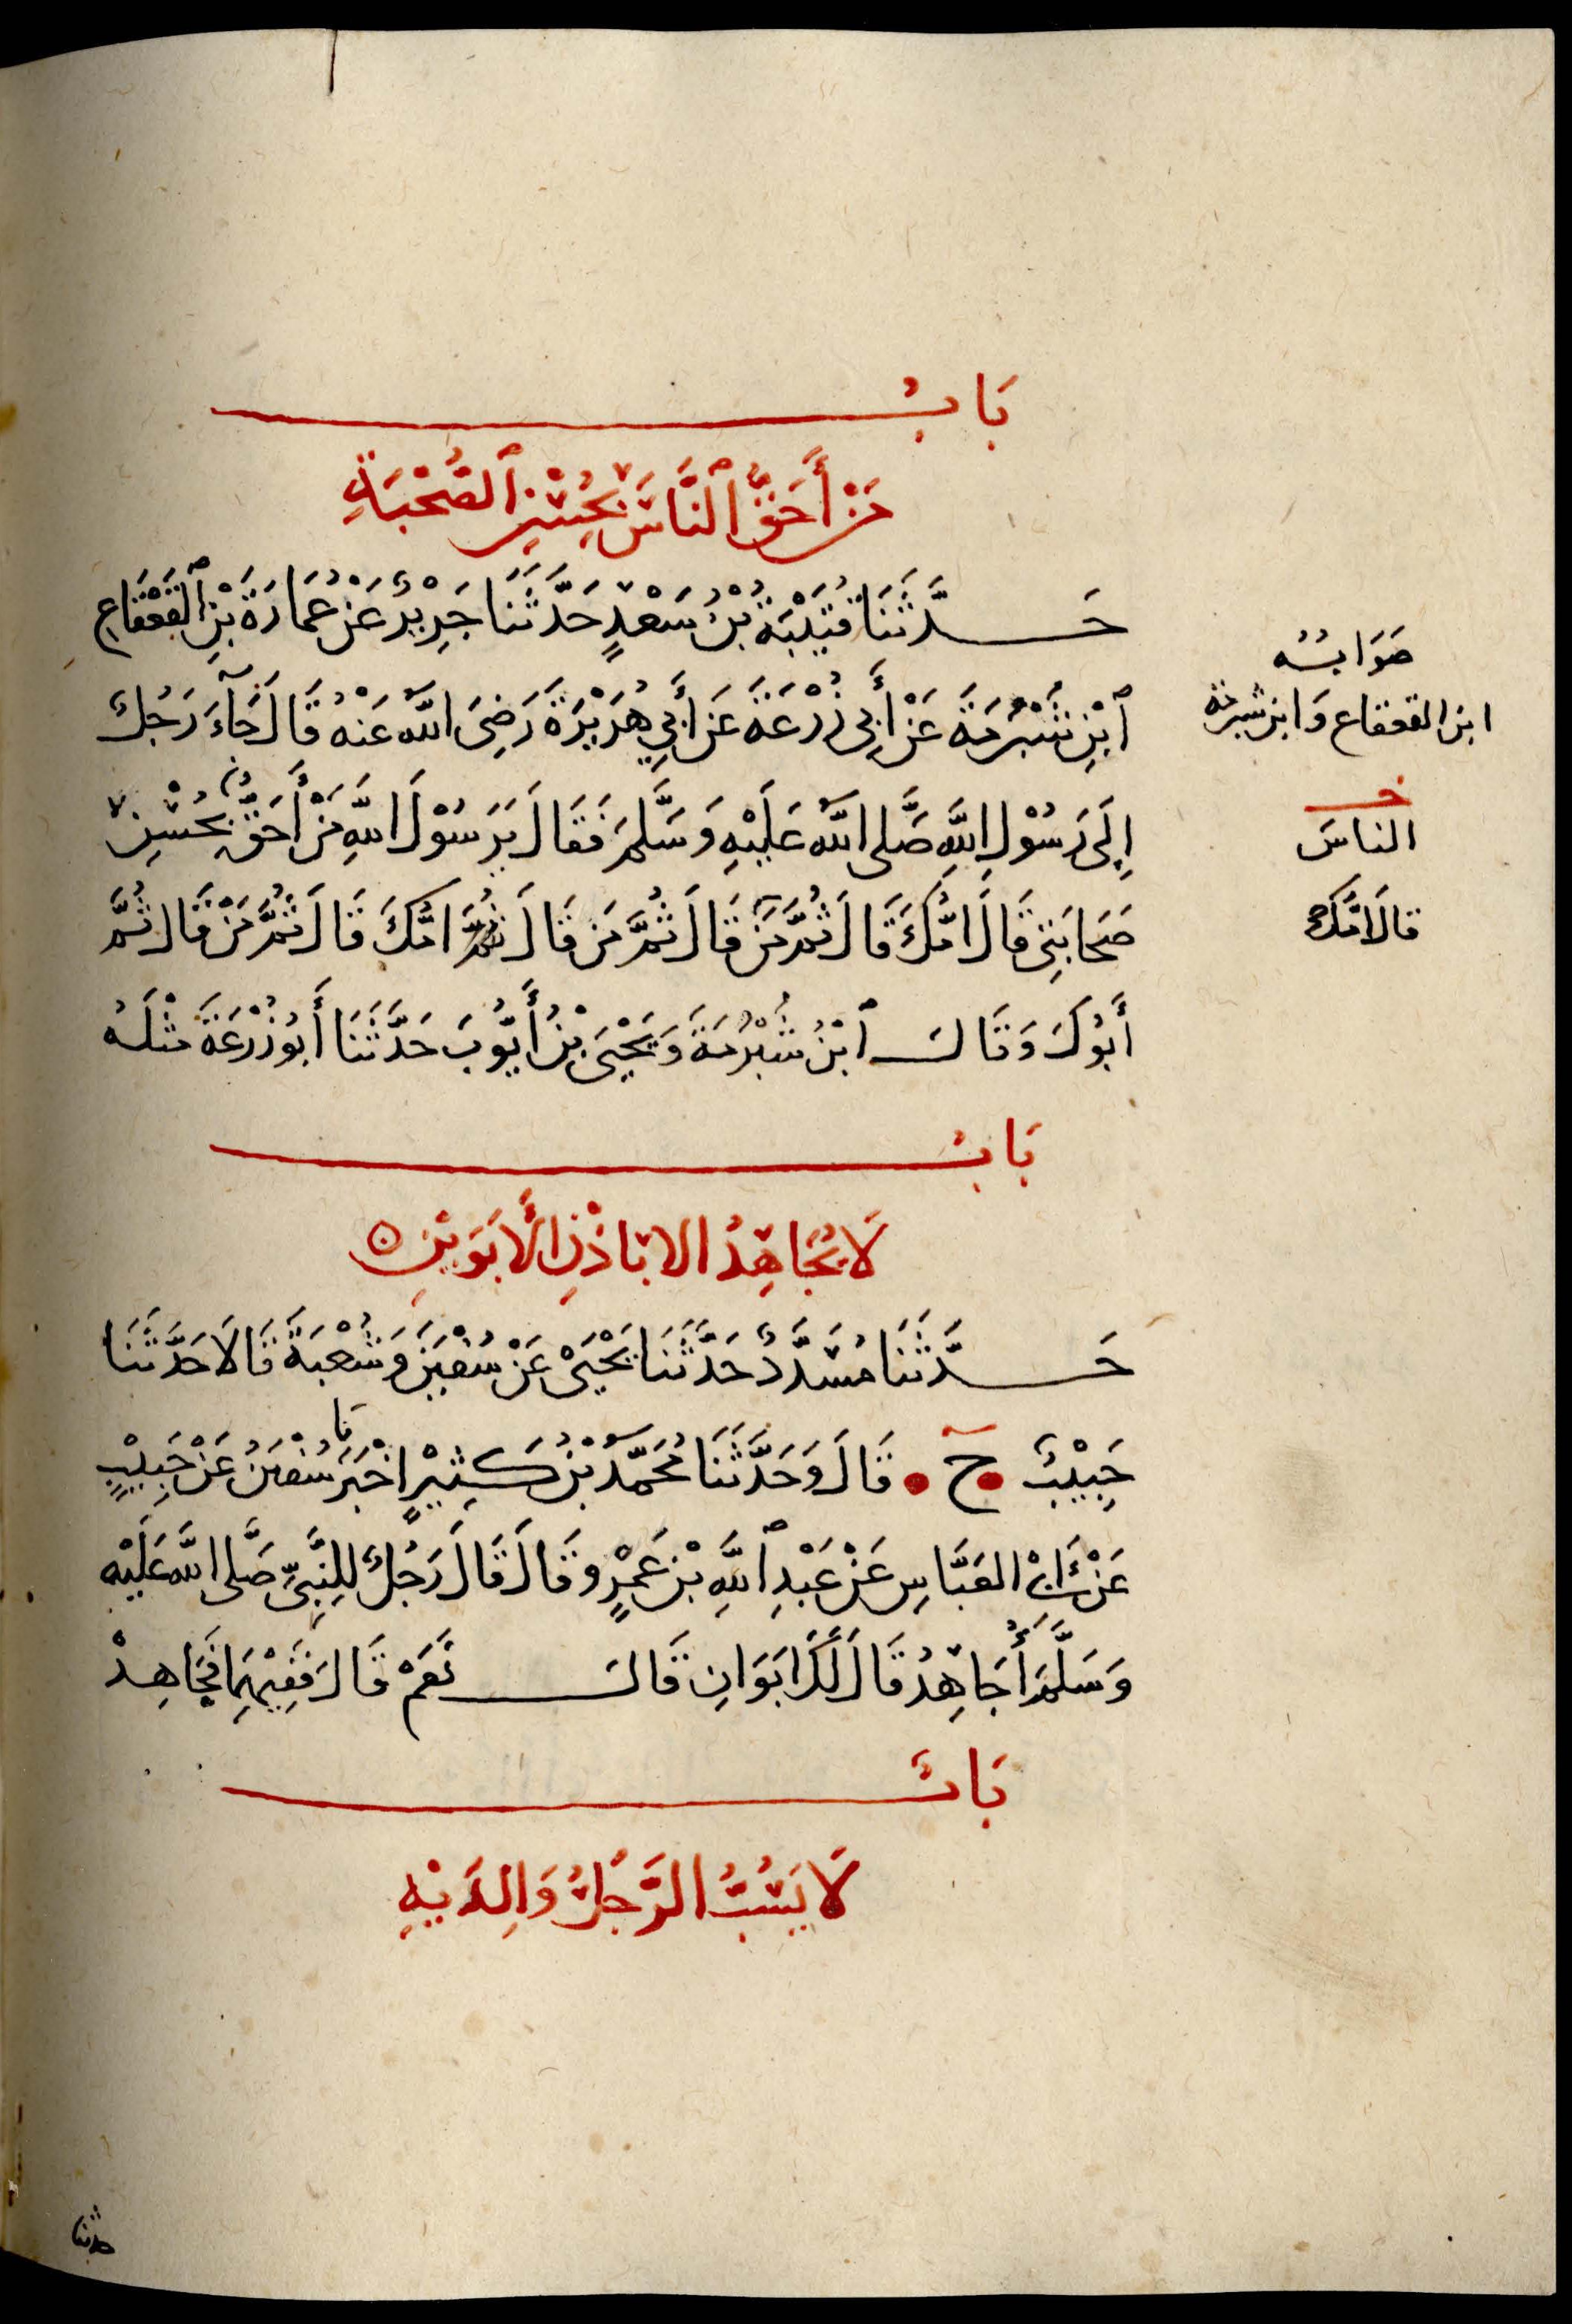 بَابُ
مَنْ أَحَقُّ ٱلنَّاسِ بِحُسْنِ ٱلصُّحْبَةِ
حَدَّثَنَا قُتَيْبَةُ بْنُ سَعْدٍ حَدَّثَنَا جَرِيْرٌ عَنْ عُمَارَةَ بْنِ ٱلْقَعْقَاعِ
ٱبْنِ شُبْرُمَةَ عَنْ أَبِي زُرْعَةَ عَنْ أَبِي هُرَيْرَةَ رَضِيَ اللَّهُ عَنْهُ قَالَ جَآءَ رَجُلٌ
إِلَى رَسُوْلِ اللَّهِ صَلَّى اللَّهُ عَلَيْهِ وَسَلَّمَ فَقَالَ يَرَسُوْلَ اللَّهِ مَنْ أَحَقُّ بِحُسْنِ
صَحَابَتِي قَالَ أُمُّكَ قَالَ ثُمَّ مَنْ قَالَ ثُمَّ مَن قَالَ ثُمَّ امُّكَ قَالَ ثُمَّ مَنْ قَالَ ثُمَّ
أَبُوْكَ وَقَالَ ٱبْنُ شُبْرُمَةَ وَيَحْيَى بْنُ أَيُّوبَ حَدَّثَنَا أَبُو زُرْعَةَ مِثْلَهُ
صَوَابُهُ
ابن القعقاع وَابن شبرمة
خـ
الناسَ
قالَ امُّكَ
بَابُ
لَا يُجَاهِدُ الا بِاذْنِ الْأَبَوَيْنِ ه
حَدَّثَنَا مُسَدَّدٌ حَدَّثَنَا يَحْيَىْ عَنْ سُفْيَنَ وَشُعْبَةَ قَالَا حَدَّثَنَا
حَبِيْبٌ ح قَالَ وَحَدَّثَنَا مُحَمَّدُ بْنُ كَثِيْرٍ اخْبَرَنَا سُفْيَنُ عَنْ حَبِيْبٍ
عَنْ أَبِي الْعَبَّاسِ عَنْ عَبْدِ ٱللَّهِ بْنِ عَمْرٍو قَالَ قَالَ رَجُلٌ لِلنَّبِيِّ صَلَّى اللَّهُ عَلَيْهِ
وَسَلَّمَ أُجَاهِدُ قَالَ لَكَ ابَوَانِ قَالَ نَعَمْ قَالَ فَفِيْهِمَا فَجَاهِدْ
بَابٌ
لَا يَسُبُّ الرَّجُلُ وَالِدَيْهِ
حدثنا